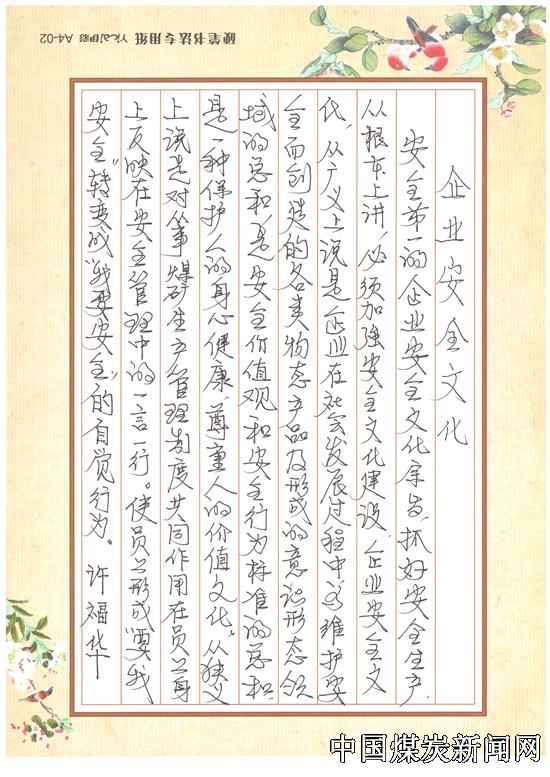 硬笔书法专用纸 Yicai伊彩 A4-02
企业安全文化
安全第一的企业安全文化宗旨,抓好安全生产,
从根本上讲,必须加强安全文化建设,企业安全文
化,从广义上说是企业在社会发展过程中为维护安
全而创造的各类物态产品及形成的意识形态领
域的总和,是安全价值观和安全行为标准的总和,
是一种保护人的身心健康,尊重人的价值文化。从狭义
上说是对从事煤矿生产管理制度共同作用在员工身
上反映在安全管理中的一言一行。使员工形成“要我
安全”转变成“我要安全”的自觉行为。 许福华
中国煤炭新闻网